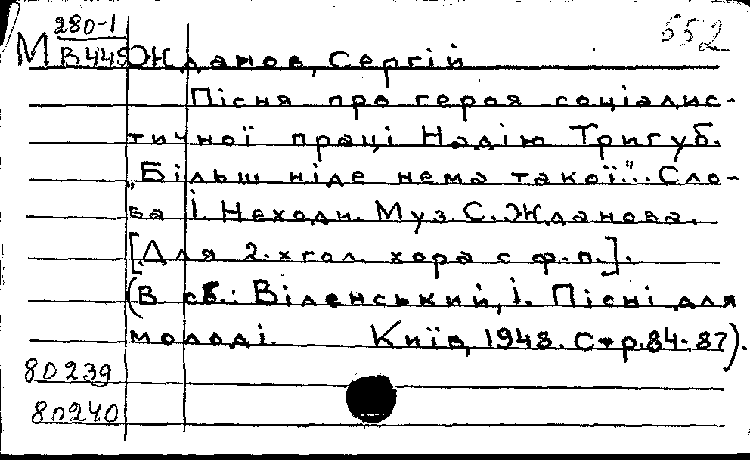 280-1
552
М В445 Жданов, Сергій
Пісня про героя соціаліс-
тичної праці Надію Тригуб.
„Більш ніде нема такої...". Сло-
ва І. Неходи. Муз. С. Жданова.
[Для 2-хгол. хора с ф.п.].
(В сб.: Віленський, І. Пісні для
молоді. Київ, 1948. Стр. 84-87).
80239
80240